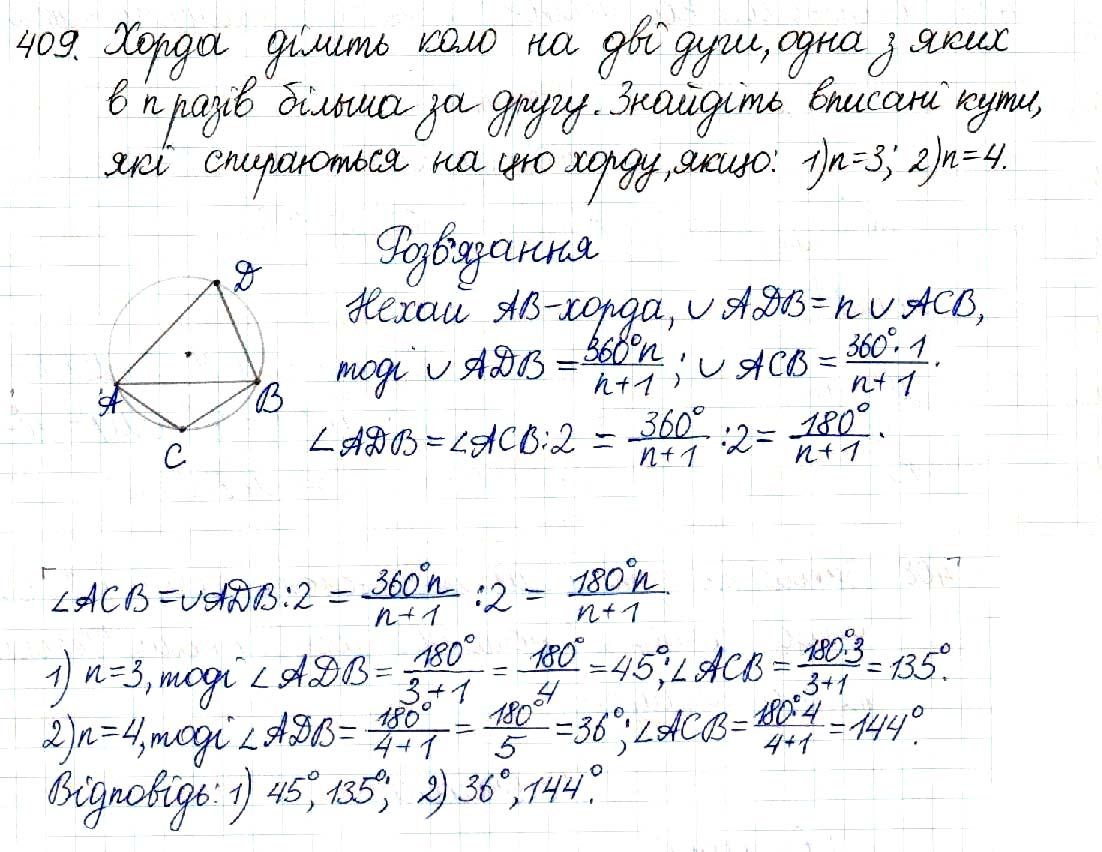 409. Хорда ділить коло на дві дуги, одна з яких
в n разів більша за другу. Знайдіть вписані кути,
які спираються на цю хорду, якщо: 1) n=3; 2) n=4.
Розв'язання
D
A
B
C
Нехай AB-хорда, ∪ ADB = n ∪ ACB,
тоді ∪ ADB = 360°n/n+1; ∪ ACB = 360°·1/n+1.
∠ADB = ∠ACB:2 = 360°/n+1 :2 = 180°/n+1.
∠ACB = ∪ADB:2 = 360°n/n+1 :2 = 180°n/n+1.
1) n=3, тоді ∠ADB = 180°/3+1 = 180°/4 = 45°; ∠ACB = 180°·3/3+1 = 135°.
2) n=4, тоді ∠ADB = 180°/4+1 = 180°/5 = 36°; ∠ACB = 180°·4/4+1 = 144°.
Відповідь: 1) 45°, 135°; 2) 36°, 144°.